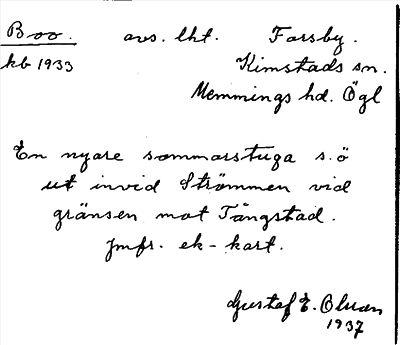 Boo. avs. lht. Farsby.
kb 1933 Kimstads sn.
Memmings hd. Ögl
En nyare sommarstuga s.ö
ut invid Strömmen vid
gränsen mot Tångstad.
Jmfr. ek-kart.
Gustaf E. Olman
1937